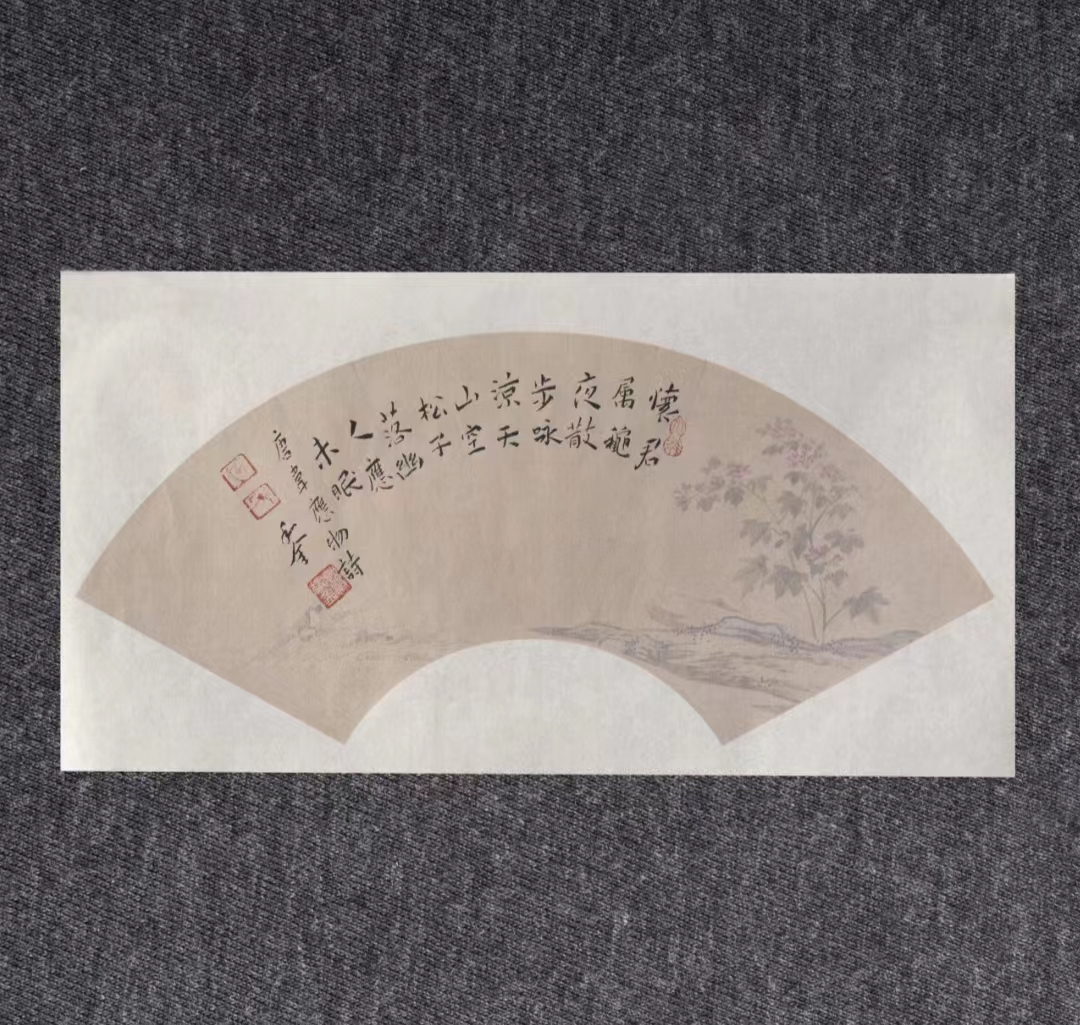 懷君
属穐
夜散
步咏
涼天
山空
松子
落幽
人應
未眠
唐韋應物詩